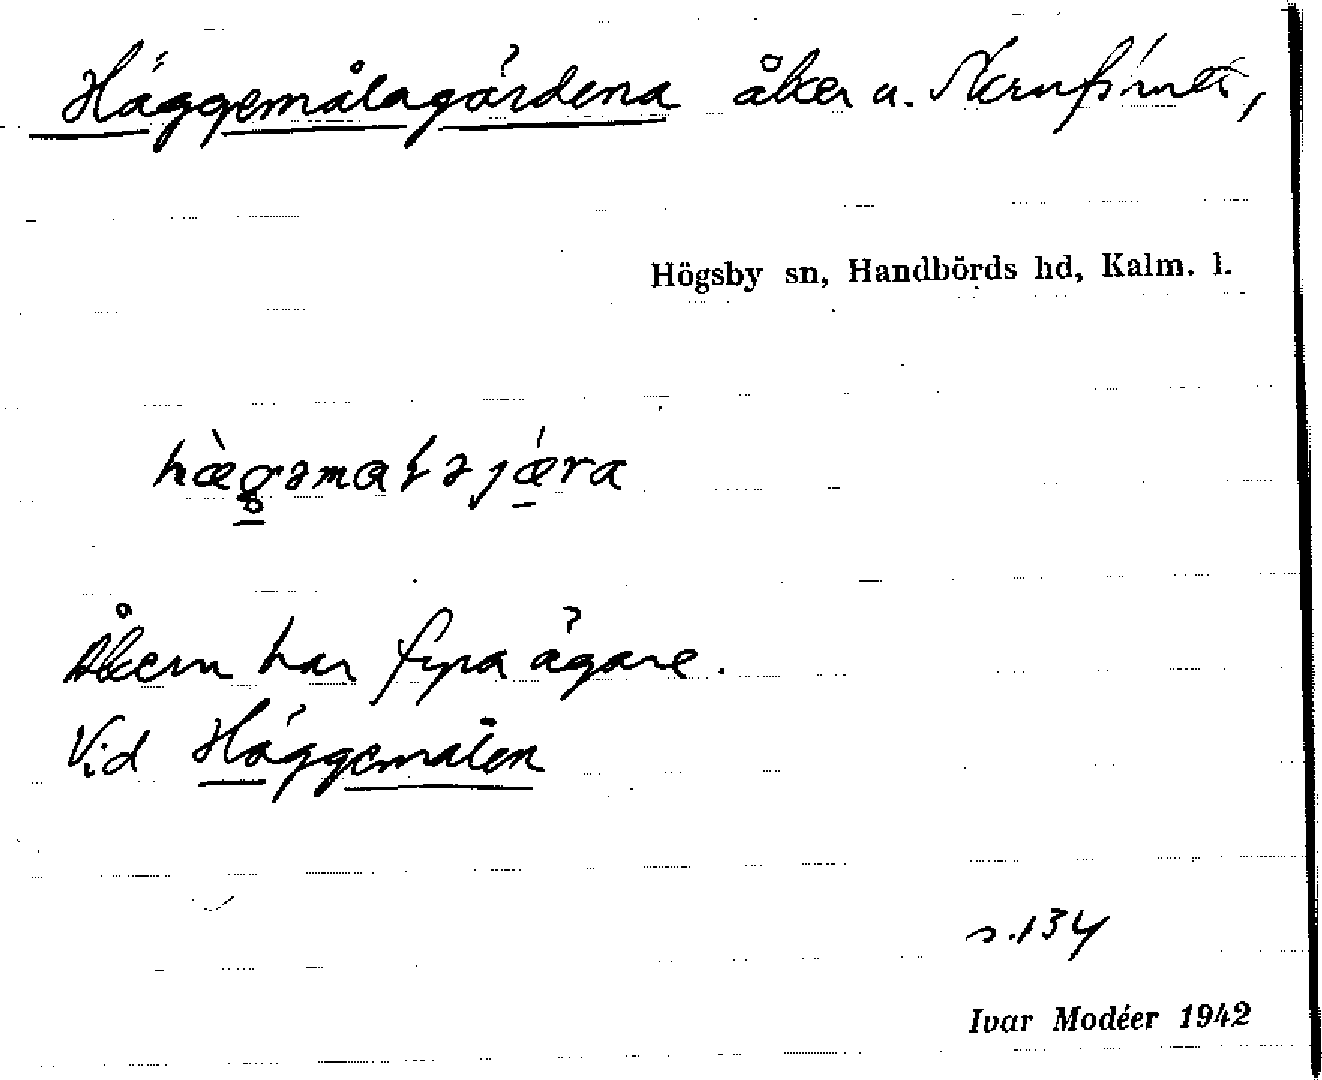 Häggemålagärdena åker u. Namsfinti,
Högsby sn, Handbörds hd, Kalm. l.
hæ̀gəmaɫəjǽra
Åkern har fyra ägare.
Vid Häggemålen
s. 134
Ivar Modéer 1942